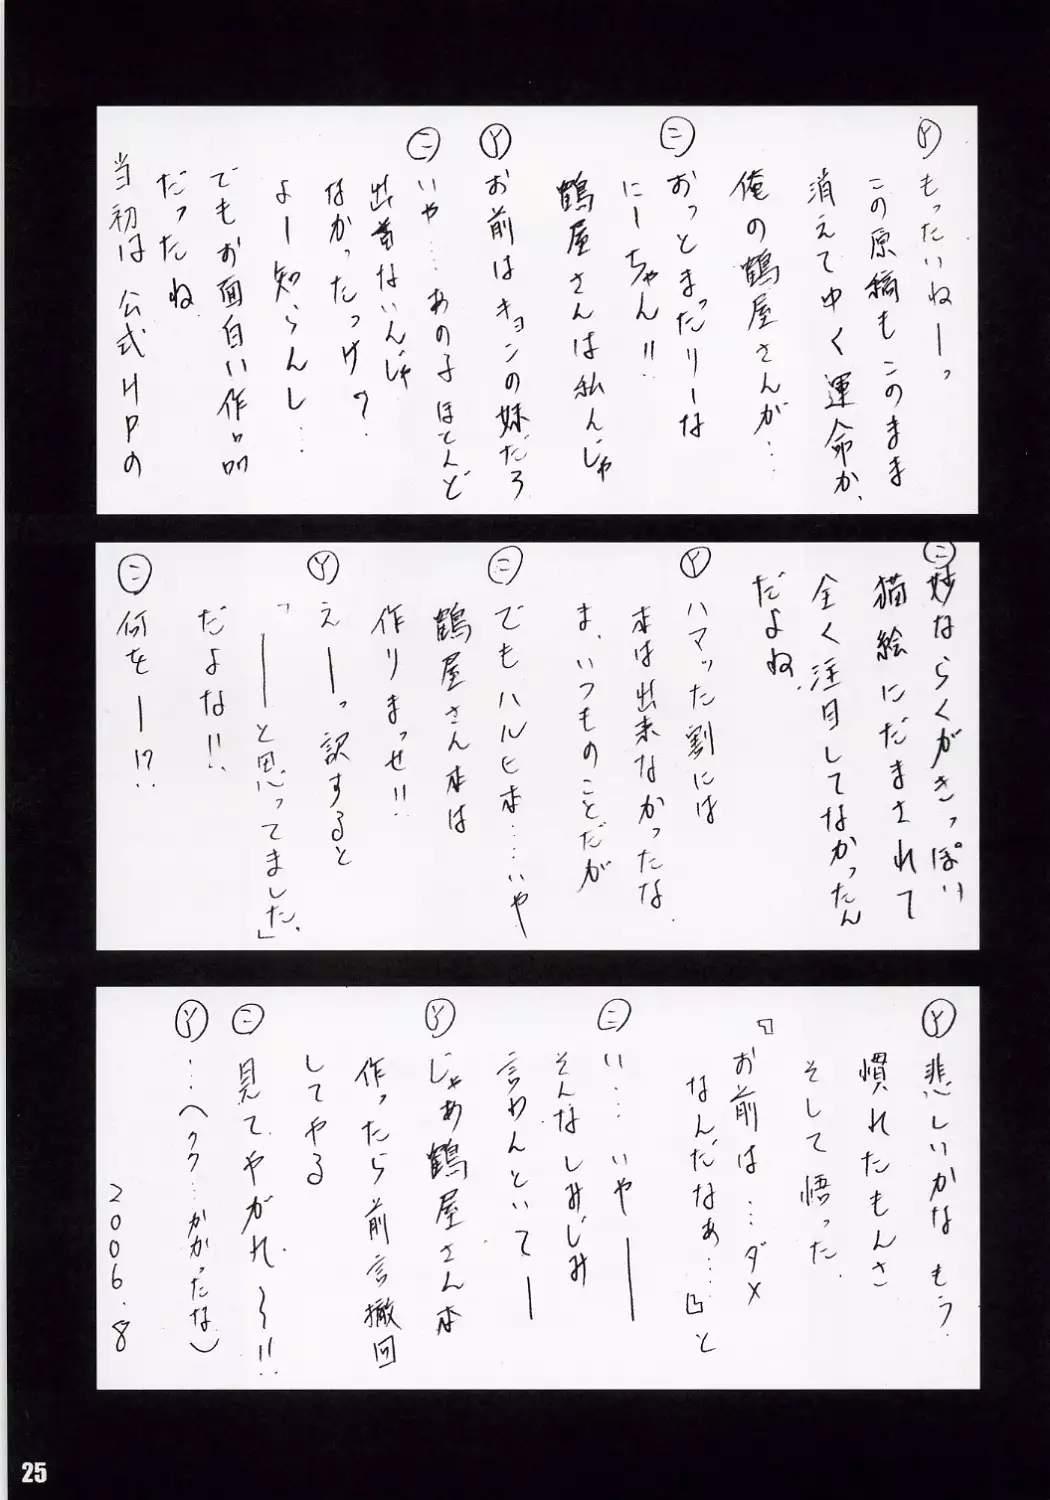 Ⓨもったいねーっ
この原稿もこのまま
消えてゆく運命か、
俺の鶴屋さんが…
㊁おっとまったりーな
にーちゃん!!
鶴屋さんは私んじゃ
Ⓨお前はキョンの妹だろ
㊁いや…あの子ほとんど
出番ないんじゃ
なかったっけ?
よー知らんし…
でもお面白い作品
だったね
当初は公式HPの
㊁妙ならくがきっぽい
猫絵にだまされて
全く注目してなかったん
だよね、
Ⓨハマッた割には
本は出来なかったな、
ま、いつものことだが
㊁でもハルヒ本…いや
鶴屋さん本は
作りまっせ!!
Ⓨえーっ訳すると
「――と思ってました。」
だよな!!
㊁何をー!?
Ⓨ悲しいかなもう
慣れたもんさ
そして悟った、
『お前は…ダメ
なんだなぁ…』と
㊁い…いや――
そんなしみじみ
言わんといてー
Ⓨじゃあ鶴屋さん本
作ったら前言撤回
してやる
㊁見てやがれ~!!
Ⓨ…(ククク…かかったな)
2006.8
25